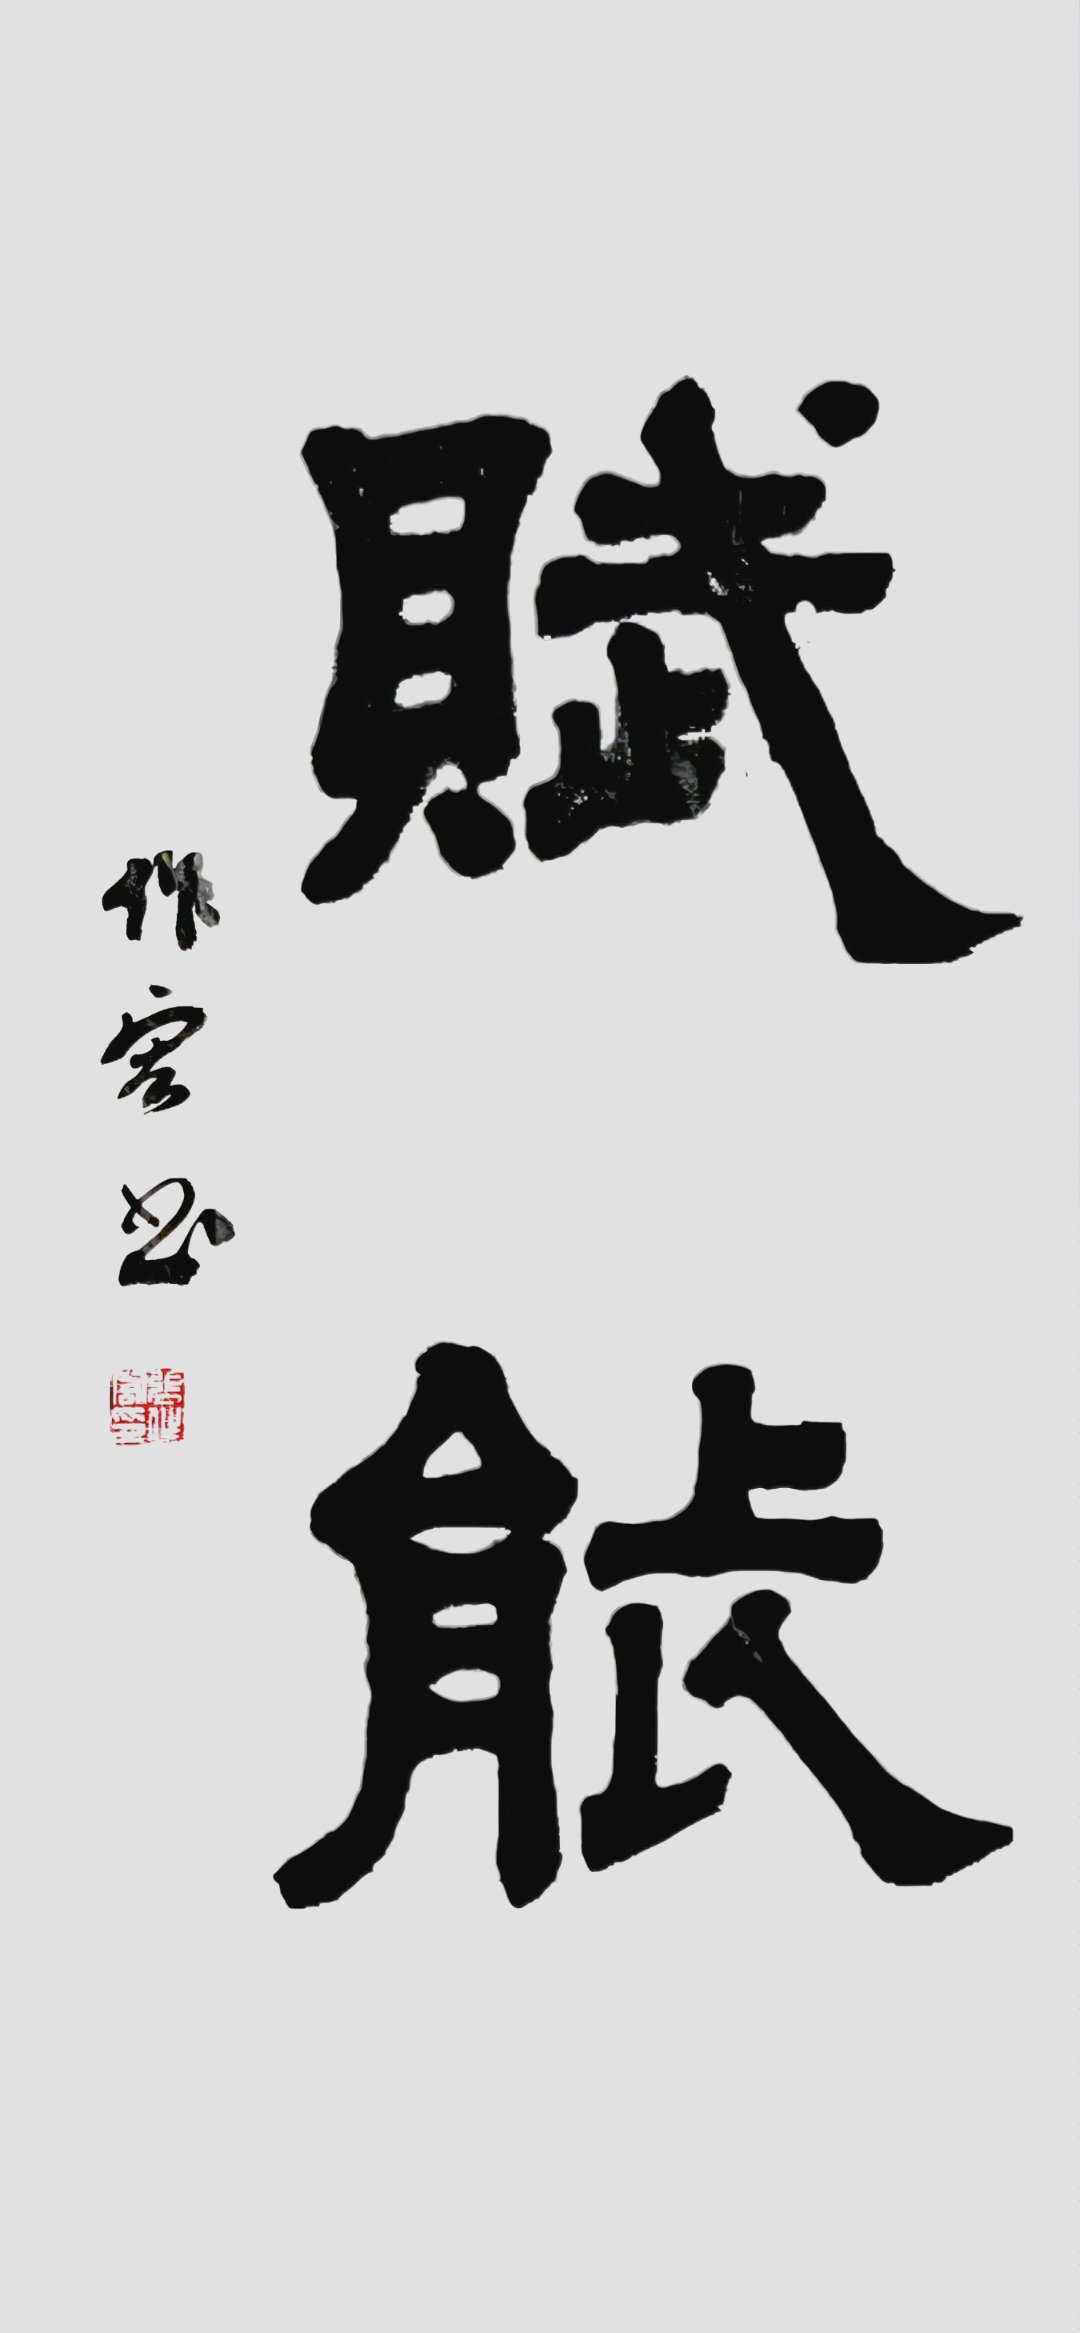 賦能
作客書